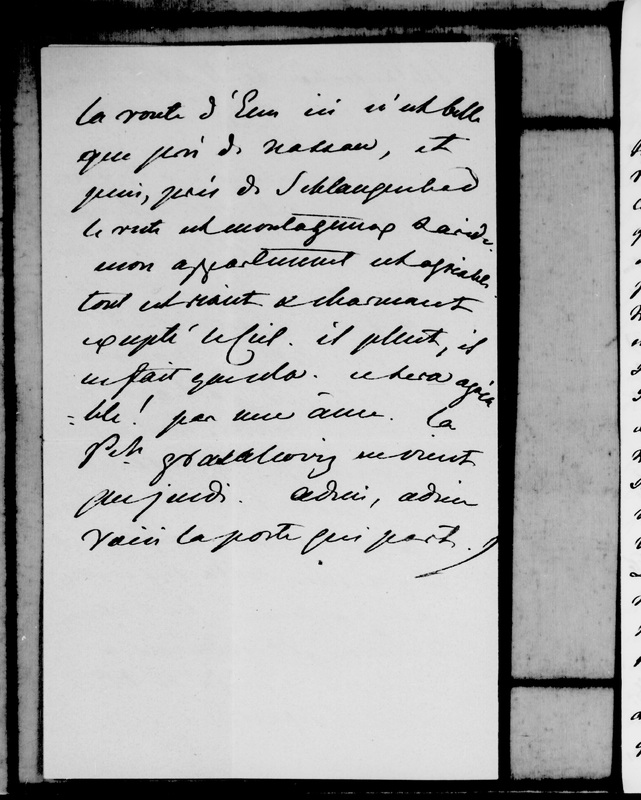 la route d'Ems ici n'est belle
que près de Nassau, et
puis, près de Schlangenbad
le reste est montagneux & aride.
mon appartement est agréable.
tout est riant & charmant
excepté le Ciel. il pleut, il
ne fait que cela. ce sera agréa
=ble! pas une âme. la
Pss. Grassalcowiz ne vient
que jeudi. adieu, adieu
voici la poste qui part.